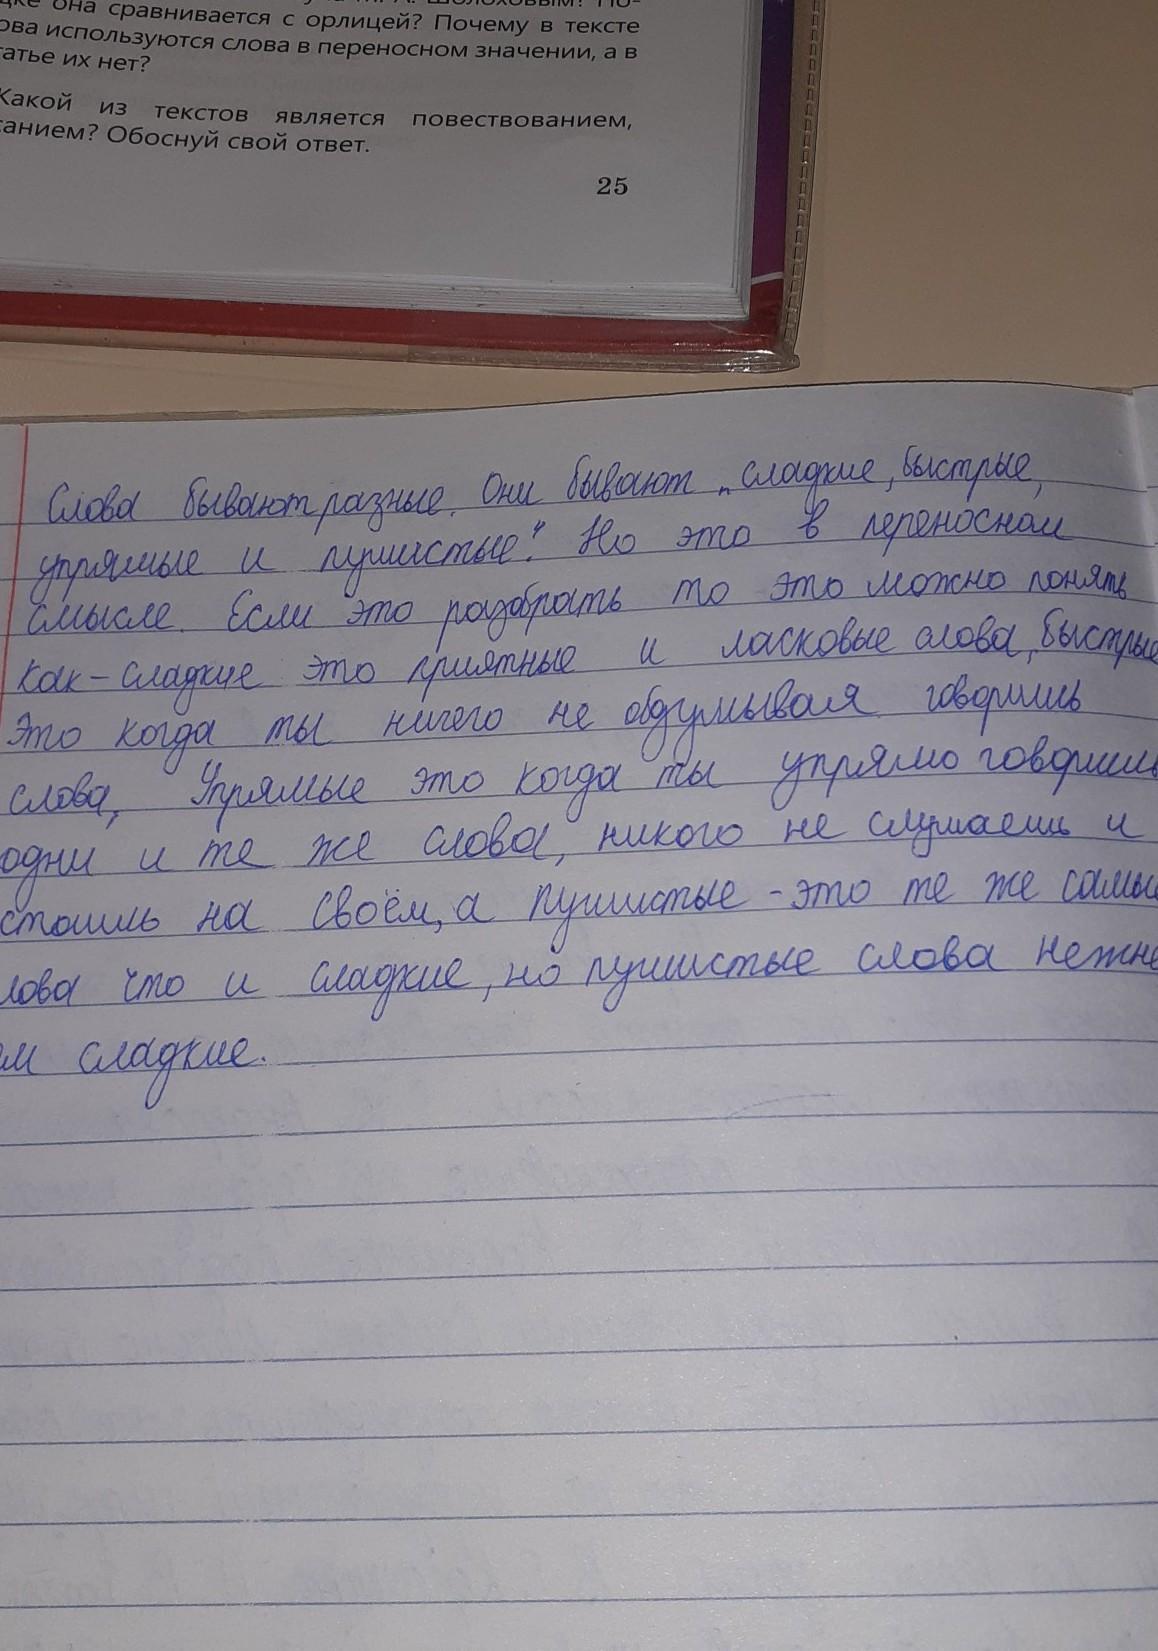 она сравнивается с орлицей? Почему в тексте
используются слова в переносном значении, а в
их нет?
Какой из текстов является повествованием,
Обоснуй свой ответ.
25
Слова бывают разные. Они бывают „сладкие, быстрые,
упрямые и пушистые“. Но это в переносном
смысле. Если это разобрать то это можно понять
как – сладкие это приятные и ласковые слова, быстрые
это когда ты ничего не обдумывая говоришь
слова, Упрямые это когда ты упрямо говоришь
одни и те же слова, никого не слушаешь и
стоишь на своём, а пушистые – это те же самы
лова что и сладкие, но пушистые слова нежне
ем сладкие.